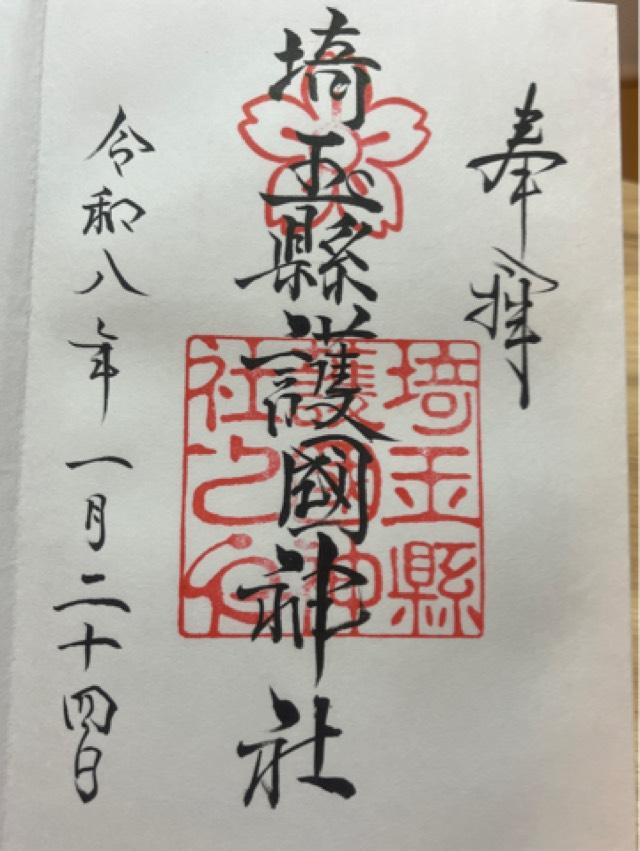 奉拝
埼玉縣護國神社
埼玉縣
護國神
社之印
令和八年一月二十四日